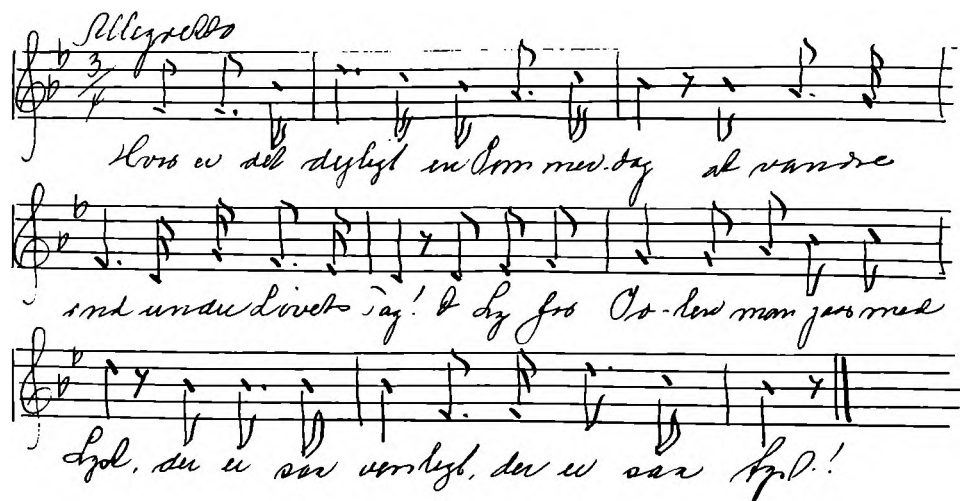 Allegretto
3/4
Hvor er det dejligt en Sommer-dag at vandre
ind under Løvets Tag! I Ly for So-len man gaar med
Lyst, der er saa versligt, der er saa tyst!